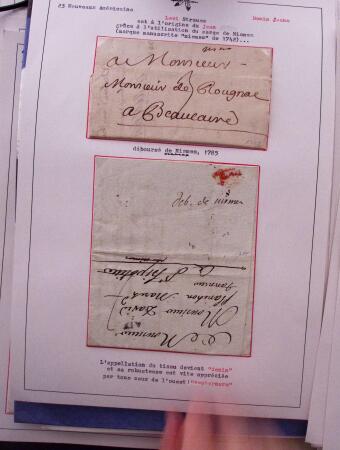 23 Nouveaux américains
Levi Strauss
Denim Jeans
est à l'origine du Jean
grâce à l'utilisation du sergé de Nismes
(marque manuscrite "nismes" de 1742)...
a Monsieur
Monsieur de Rougnac
a Beaucaire
déboursé de Nismes, 1785
deb. de nismes
a Monsieur
Monsieur David
L'appellation du tissu devient "denim"
et sa robustesse est vite appréciée
par tous ceux de l'ouest